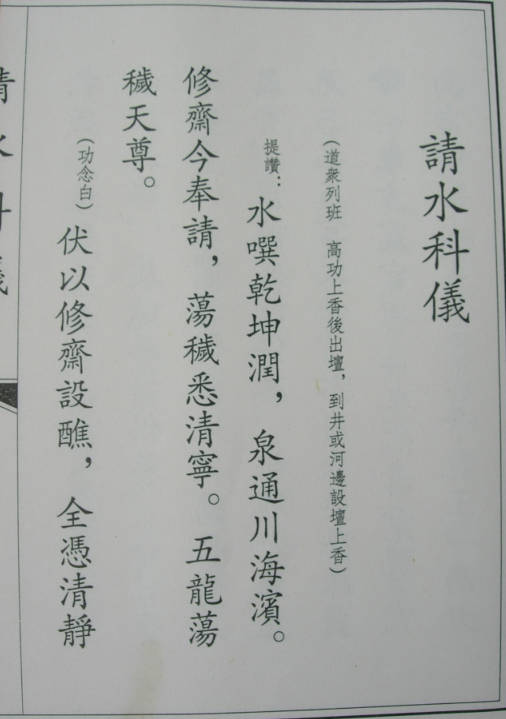 請水科儀
（道衆列班　高功上香後出壇，到井或河邊設壇上香）
提讚：水噀乾坤潤，泉通川海濱。
修齋今奉請，蕩穢悉清寧。五龍蕩
穢天尊。
（功念白）伏以修齋設醮，全憑清靜
請水科儀